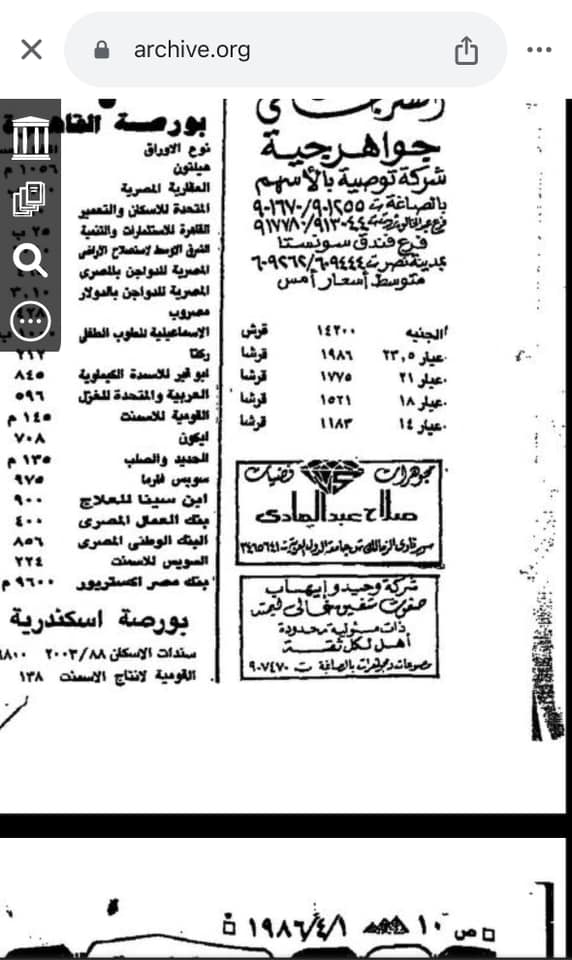 archive.org
جواهرجية
شركة توصية بالأسهم
بالصاغة ت ٩٠١٢٥٥/٩٠١٦٧٠
فرع فندق سونستا
بمدينة نصر ت ٦٠٩٤٤٤/٦٠٩٢٦٢
متوسط أسعار أمس
الجنيه ١٤٢٠٠ قرش
عيار ٢٣,٥ ١٩٨٦ قرشا
عيار ٢١ ١٧٧٥ قرشا
عيار ١٨ ١٥٢١ قرشا
عيار ١٤ ١١٨٣ قرشا
مجوهرات فضيات
صلاح عبدالهادى
شركة وحيد وإيهاب
ذات مسئولية محدودة
أهل لكل ثقة
مصوغات ومجوهرات بالصاغة ت ٩٠٧٤٧٠
بورصة القاهرة
نوع الاوراق
هيلتون ١٠٥٦ م
العقارية المصرية
المتحدة للاسكان والتعمير
القاهرة للاستثمارات والتنمية ٢٥ ب
الشرق الاوسط لاستصلاح الأراضى
المصرية للدواجن بالمصرى
المصرية للدواجن بالدولار ٣,١٠
مصروب
الاسماعيلية للطوب الطفلى
ركتا ٢١٢
ابو قير للاسمدة الكيماوية ٨٤٥
العربية والمتحدة للغزل ٥٩٦
القومية للاسمنت ١٤٥ م
ليكون ٧٠٨
الحديد والصلب ١٣٥ م
سويس فارما ٩٧٥
ابن سينا للعلاج ٩٠٠
بنك العمال المصرى ٤٠٠
البنك الوطنى المصرى ٨٥٦
السويس للاسمنت ٢٢٤
بنك مصر اكستريور ٩٦٠٠ م
بورصة اسكندرية
سندات الاسكان ٢٠٠٣/٨٨ ٩٨٠٠
القومية لانتاج الاسمنت ١٣٨
ص ١٠ ١٩٨٦/٤/١